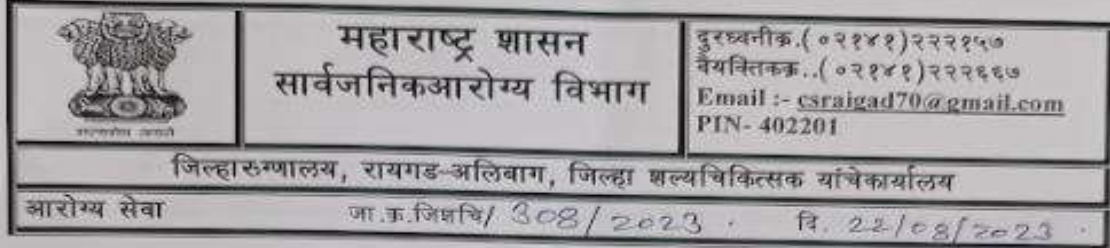 महाराष्ट्र शासन
सार्वजनिकआरोग्य विभाग
दुरध्वनीक्र.(०२१४१)२२२१५७
वैयक्तिकक्र..(०२१४१)२२२६६७
Email :- csraigad70@gmail.com
PIN- 402201
जिल्हारुग्णालय, रायगड-अलिबाग, जिल्हा शल्यचिकित्सक यांचेकार्यालय
आरोग्य सेवा जा.क्र.जिशचि/ 308/2023 . दि. 22/08/2023 .